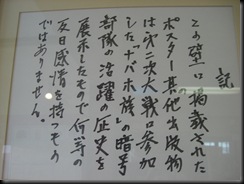 記
この壁に掲載された
ポスター其の他出版物
は第二次大戦に参加
した「ナバホ族」の暗号
部隊の活躍の歴史を
展示したもので何等の
反日感情を持つもの
ではありません。